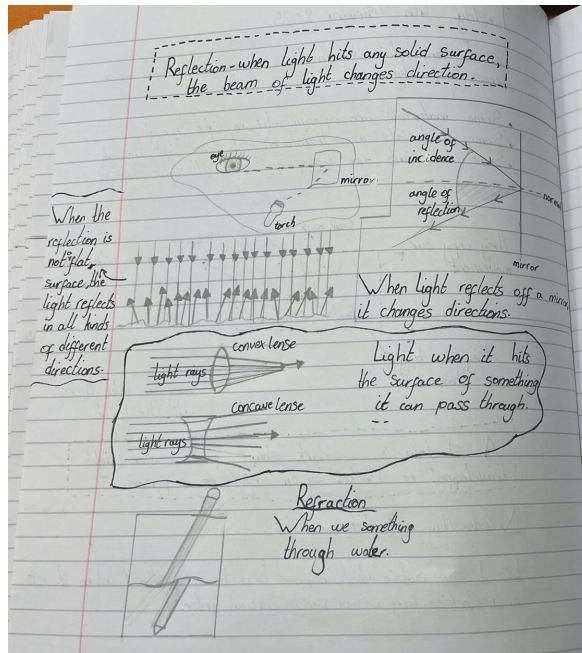 Reflection - when light hits any solid surface,
the beam of light changes direction.
eye
mirror
torch
angle of
incidence
angle of
reflection
mirror
When the
reflection is
not a flat
surface, the
light reflects
in all kinds
of different
directions.
When light reflects off a mirror,
it changes directions.
convex lense
light rays
concave lense
light rays
Light when it hits
the surface of something
it can pass through.
Refraction
When we something
through water.